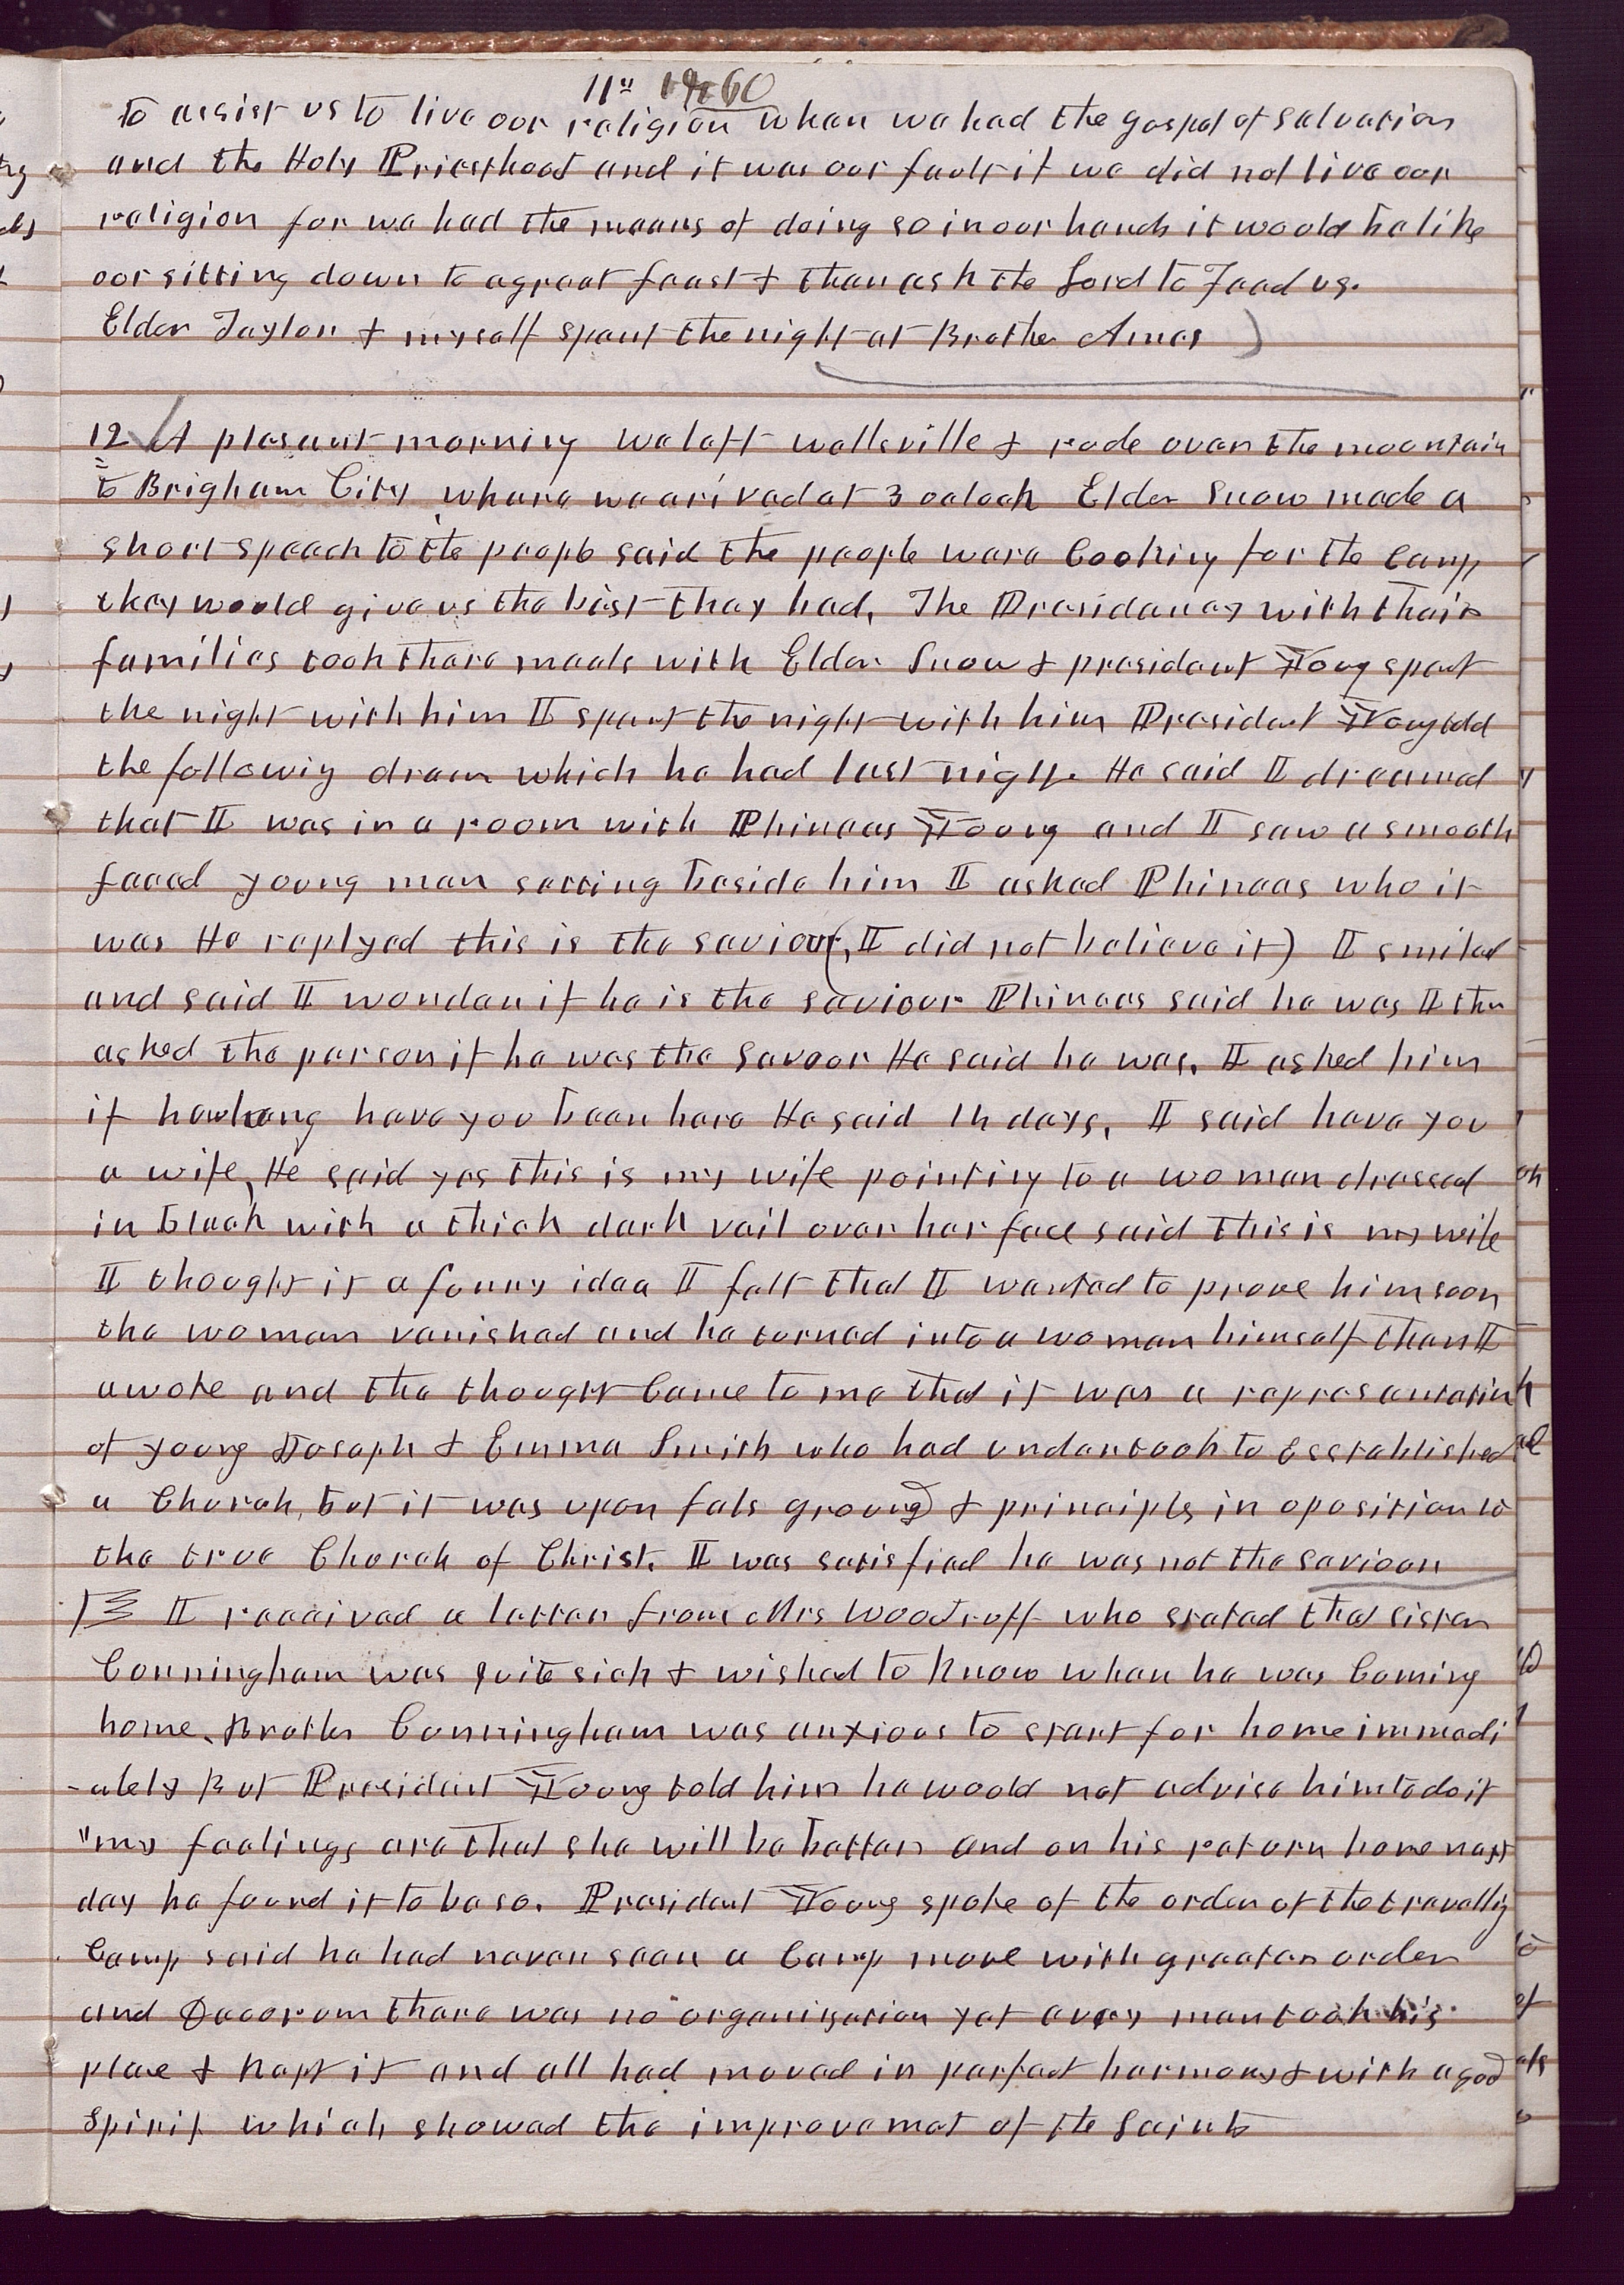 11th 1860
to assist us to live our religion when we had the gospel of salvation
and the Holy Priesthood and it was our fault if we did not live our
religion for we had the means of doing so in our hands it would be like
our sitting down to a great feast & then ask the Lord to Feed us.
Elder Taylor & myself spent the night at Brother Ames
12 A plesant morning we left wellsville & rode over the mountain
to Brigham City where we arived at 3 oclock Elder Snow made a
short speech to the people said the people were Cooking for the Camp
they would give us the best they had, The Presidency with their
families took there meals with Elder Snow & president Young spent
the night with him I spent the night with him President Young told
the followig dream which he had last night. He said I dreamed
that I was in a room with Phineas Young and I saw a smooth
faced young man setting beside him I asked Phineas who it
was He replyed this is the saviour (, I did not believe it) I smiled
and said I wonder if he is the saviour Phineas said he was I then
asked the person if he was the Savoor He said he was. I asked him
if how long have you been here He said 14 days, I said have you
a wife, He said yes this is my wife pointing to a woman dressed
in black with a thick dark vail over her face said this is my wife
I thought it a funny idea I felt that I wanted to prove him soon
the woman vanished and he turned into a woman himself then I
awoke and the thought Came to me that it was a representation
of young Joseph & Emma Smith who had undertook to Esstablished
a Church, but it was upon fals ground & principls in oposition to
the true Church of Christ. I was satisfied he was not the saviour
I received a letter from Mrs Woodruff who stated that sister
Cunningham was quite sick & wished to know when he was Coming
home. Brother Cunningham was anxious to start for home immedi
-ately But President Young told him he would not advise him to do it
"my feelings are that she will be better and on his return home next
day he found it to be so. President Young spoke of the order of the travellig
Camp said he had never seen a Camp move with greater order
and Decorum there was no organization yet every man took his
place & kept it and all had moved in perfect harmony & with a good
spirit which showed the improvemet of the Saints